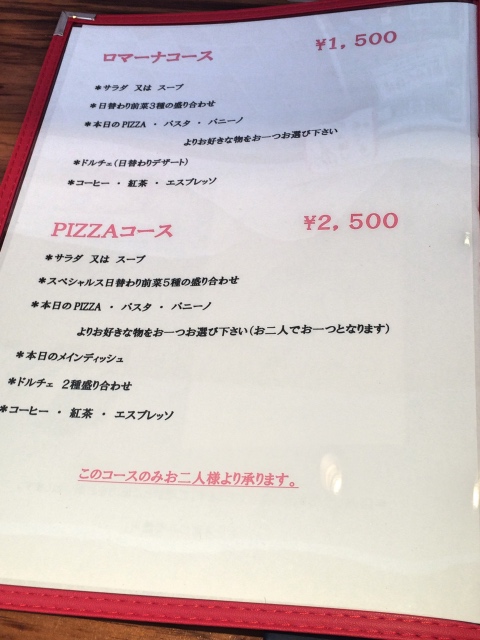 ロマーナコース ¥1,500
*サラダ 又は スープ
*日替わり前菜3種の盛り合わせ
*本日のPIZZA ・ パスタ ・ パニーノ
よりお好きな物をお一つお選び下さい
*ドルチェ(日替わりデザート)
*コーヒー ・ 紅茶 ・ エスプレッソ
PIZZAコース ¥2,500
*サラダ 又は スープ
*スペシャルス日替わり前菜5種の盛り合わせ
*本日のPIZZA ・ パスタ ・ パニーノ
よりお好きな物をお一つお選び下さい(お二人でお一つとなります)
*本日のメインディッシュ
*ドルチェ 2種盛り合わせ
*コーヒー ・ 紅茶 ・ エスプレッソ
このコースのみお二人様より承ります。